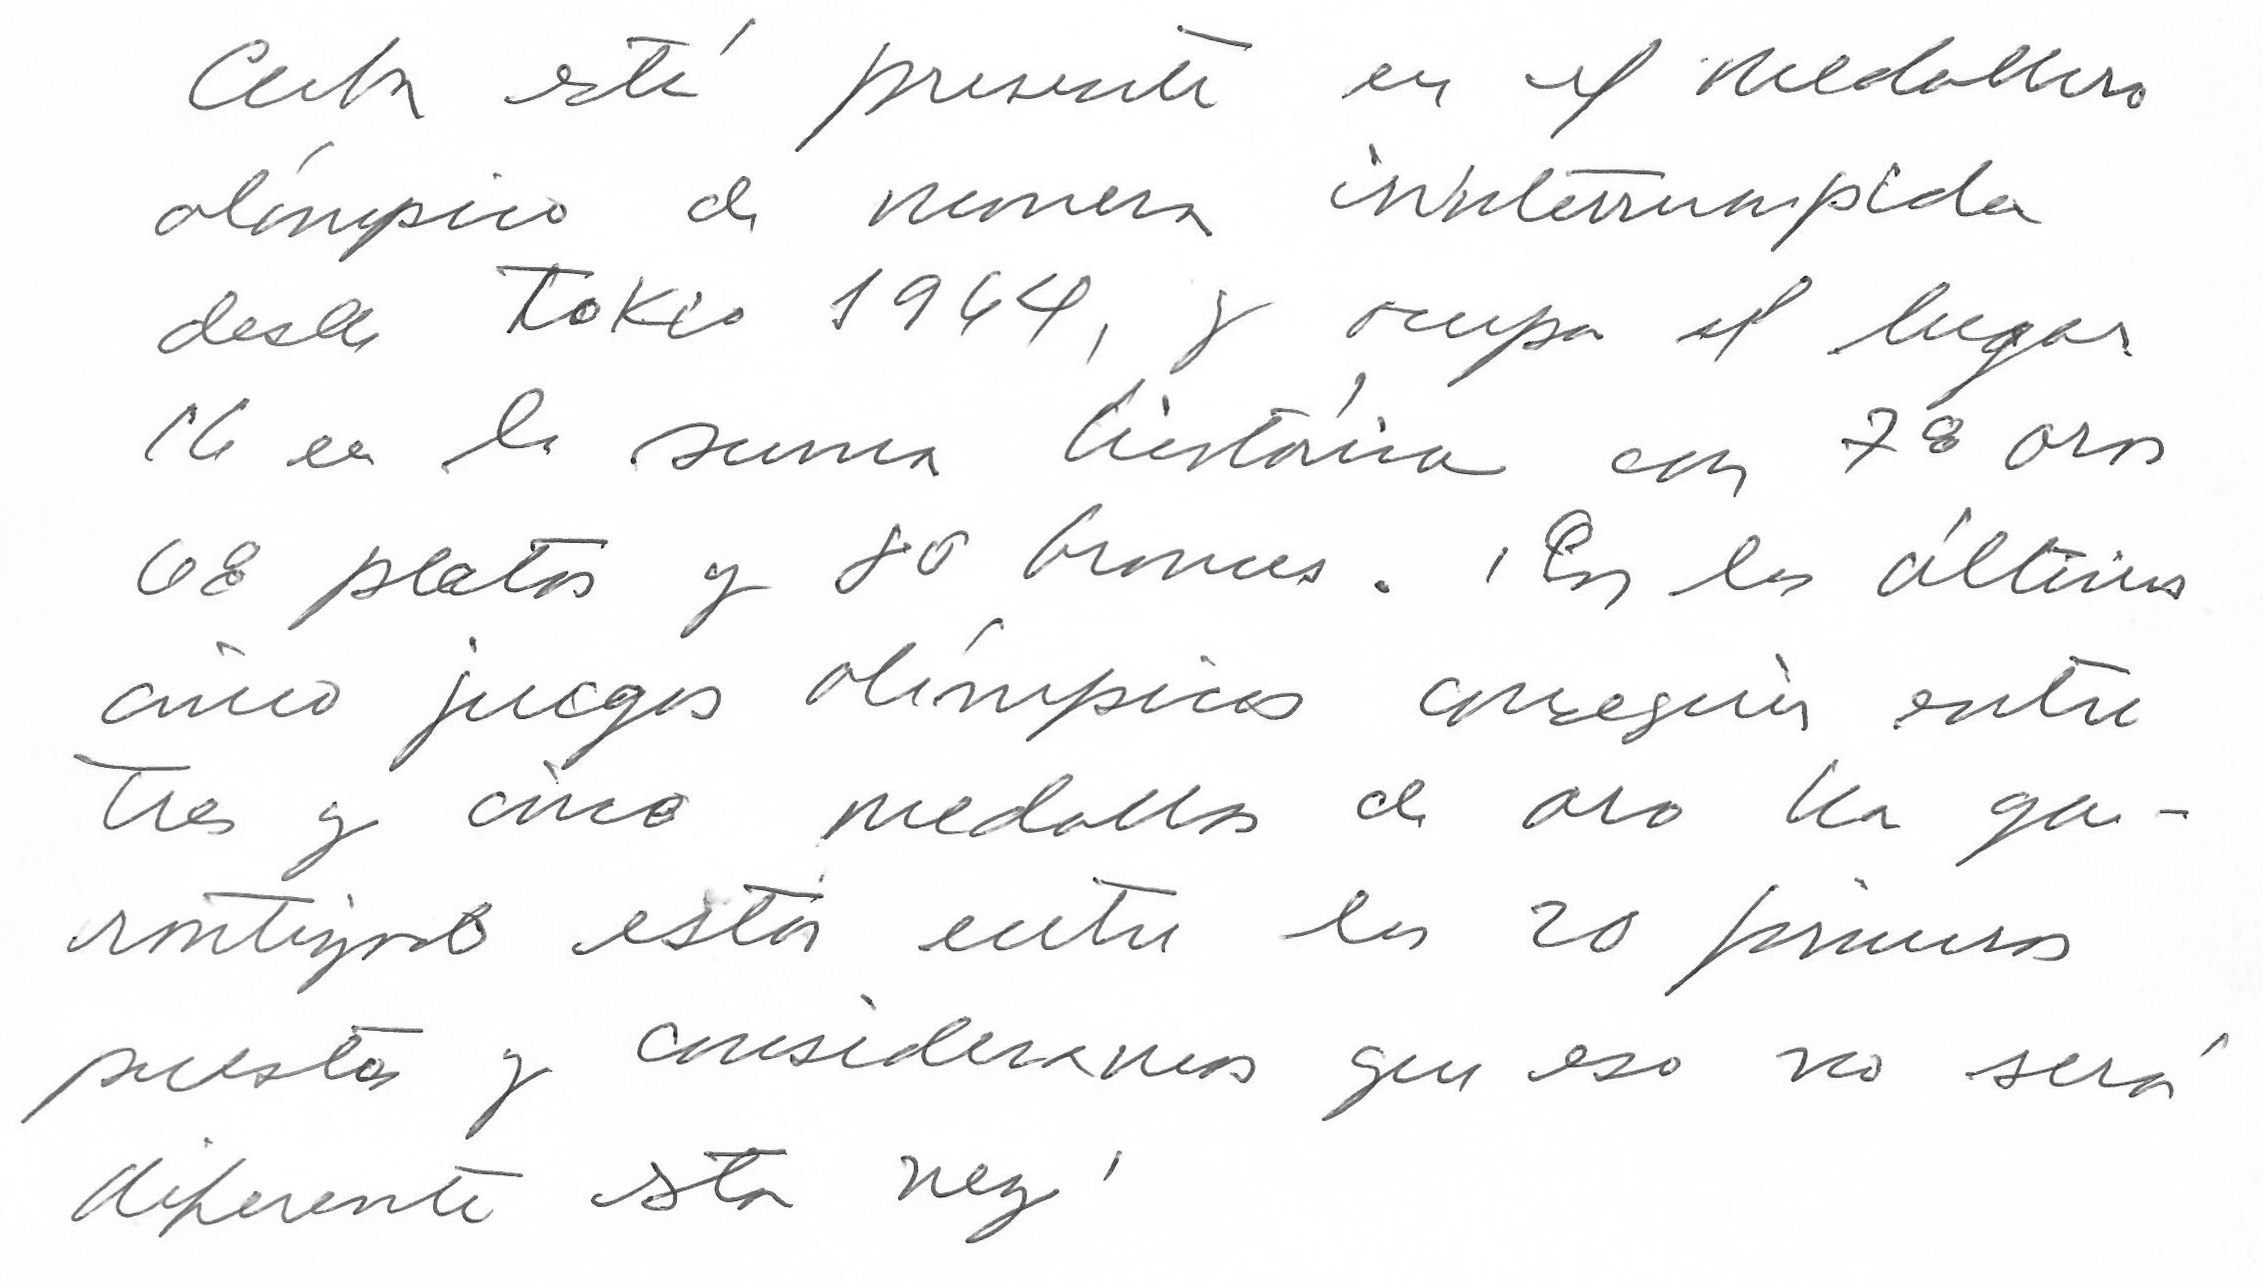 Cuba está presente en el medallero
olímpico de manera ininterrumpida
desde Tokio 1964, y ocupa el lugar
16 en la suma histórica con 78 oros
68 platas y 80 bronces. 'En los últimos
cinco juegos olímpicos conseguir entre
tres y cinco medallas de oro ha ga-
rantizado estar entre los 20 primeros
puestos y consideramos que eso no será
diferente esta vez'